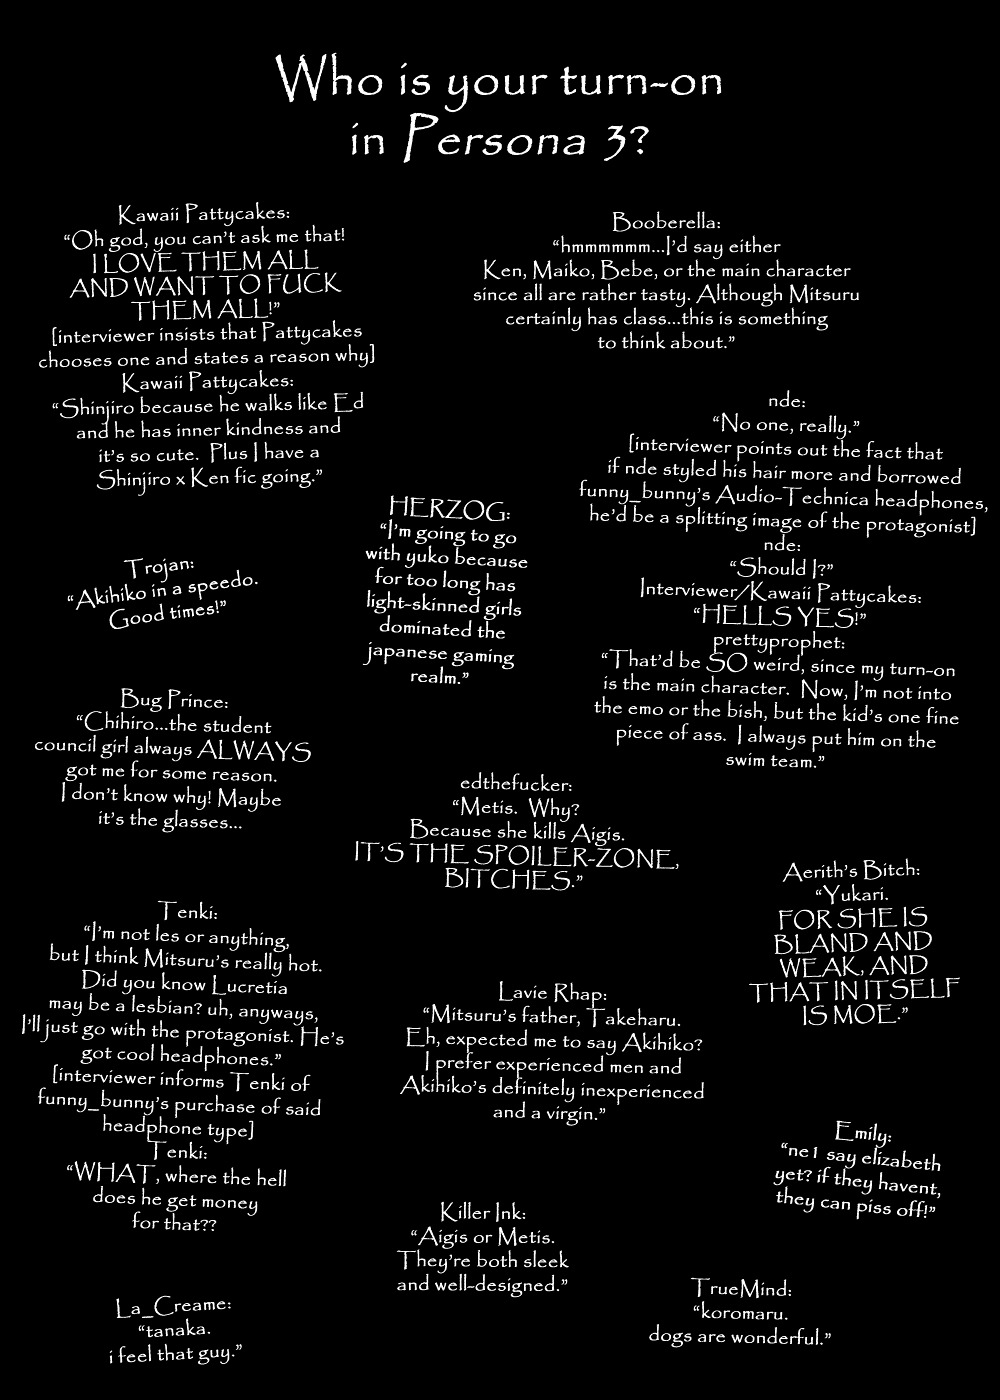 Who is your turn-on
in Persona 3?
Kawaii Pattycakes:
“Oh god, you can’t ask me that!
I LOVE THEM ALL
AND WANT TO FUCK
THEM ALL!”
[interviewer insists that Pattycakes
chooses one and states a reason why]
Kawaii Pattycakes:
“Shinjiro because he walks like Ed
and he has inner kindness and
it’s so cute. Plus I have a
Shinjiro x Ken fic going.”
Booberella:
“hmmmmmm...I’d say either
Ken, Maiko, Bebe, or the main character
since all are rather tasty. Although Mitsuru
certainly has class...this is something
to think about.”
nde:
“No one, really.”
[interviewer points out the fact that
if nde styled his hair more and borrowed
funny_bunny’s Audio-Technica headphones,
he’d be a splitting image of the protagonist]
nde:
“Should I?”
Interviewer/Kawaii Pattycakes:
“HELLS YES!”
prettyprophet:
“That’d be SO weird, since my turn-on
is the main character. Now, I’m not into
the emo or the bish, but the kid’s one fine
piece of ass. I always put him on the
swim team.”
HERZOG:
“I’m going to go
with yuko because
for too long has
light-skinned girls
dominated the
japanese gaming
realm.”
Trojan:
“Akihiko in a speedo.
Good times!”
Bug Prince:
“Chihiro...the student
council girl always ALWAYS
got me for some reason.
I don’t know why! Maybe
it’s the glasses...
edthefucker:
“Metis. Why?
Because she kills Aigis.
IT’S THE SPOILER-ZONE,
BITCHES.”
Aerith’s Bitch:
“Yukari.
FOR SHE IS
BLAND AND
WEAK, AND
THAT IN ITSELF
IS MOE.”
Tenki:
“I’m not les or anything,
but I think Mitsuru’s really hot.
Did you know Lucretia
may be a lesbian? uh, anyways,
I’ll just go with the protagonist. He’s
got cool headphones.”
[interviewer informs Tenki of
funny_bunny’s purchase of said
headphone type]
Tenki:
“WHAT, where the hell
does he get money
for that??
Lavie Rhap:
“Mitsuru’s father, Takeharu.
Eh, expected me to say Akihiko?
I prefer experienced men and
Akihiko’s definitely inexperienced
and a virgin.”
Emily:
“ne1 say elizabeth
yet? if they havent,
they can piss off!”
Killer Ink:
“Aigis or Metis.
They’re both sleek
and well-designed.”
La_Creame:
“tanaka.
i feel that guy.”
TrueMind:
“koromaru.
dogs are wonderful.”